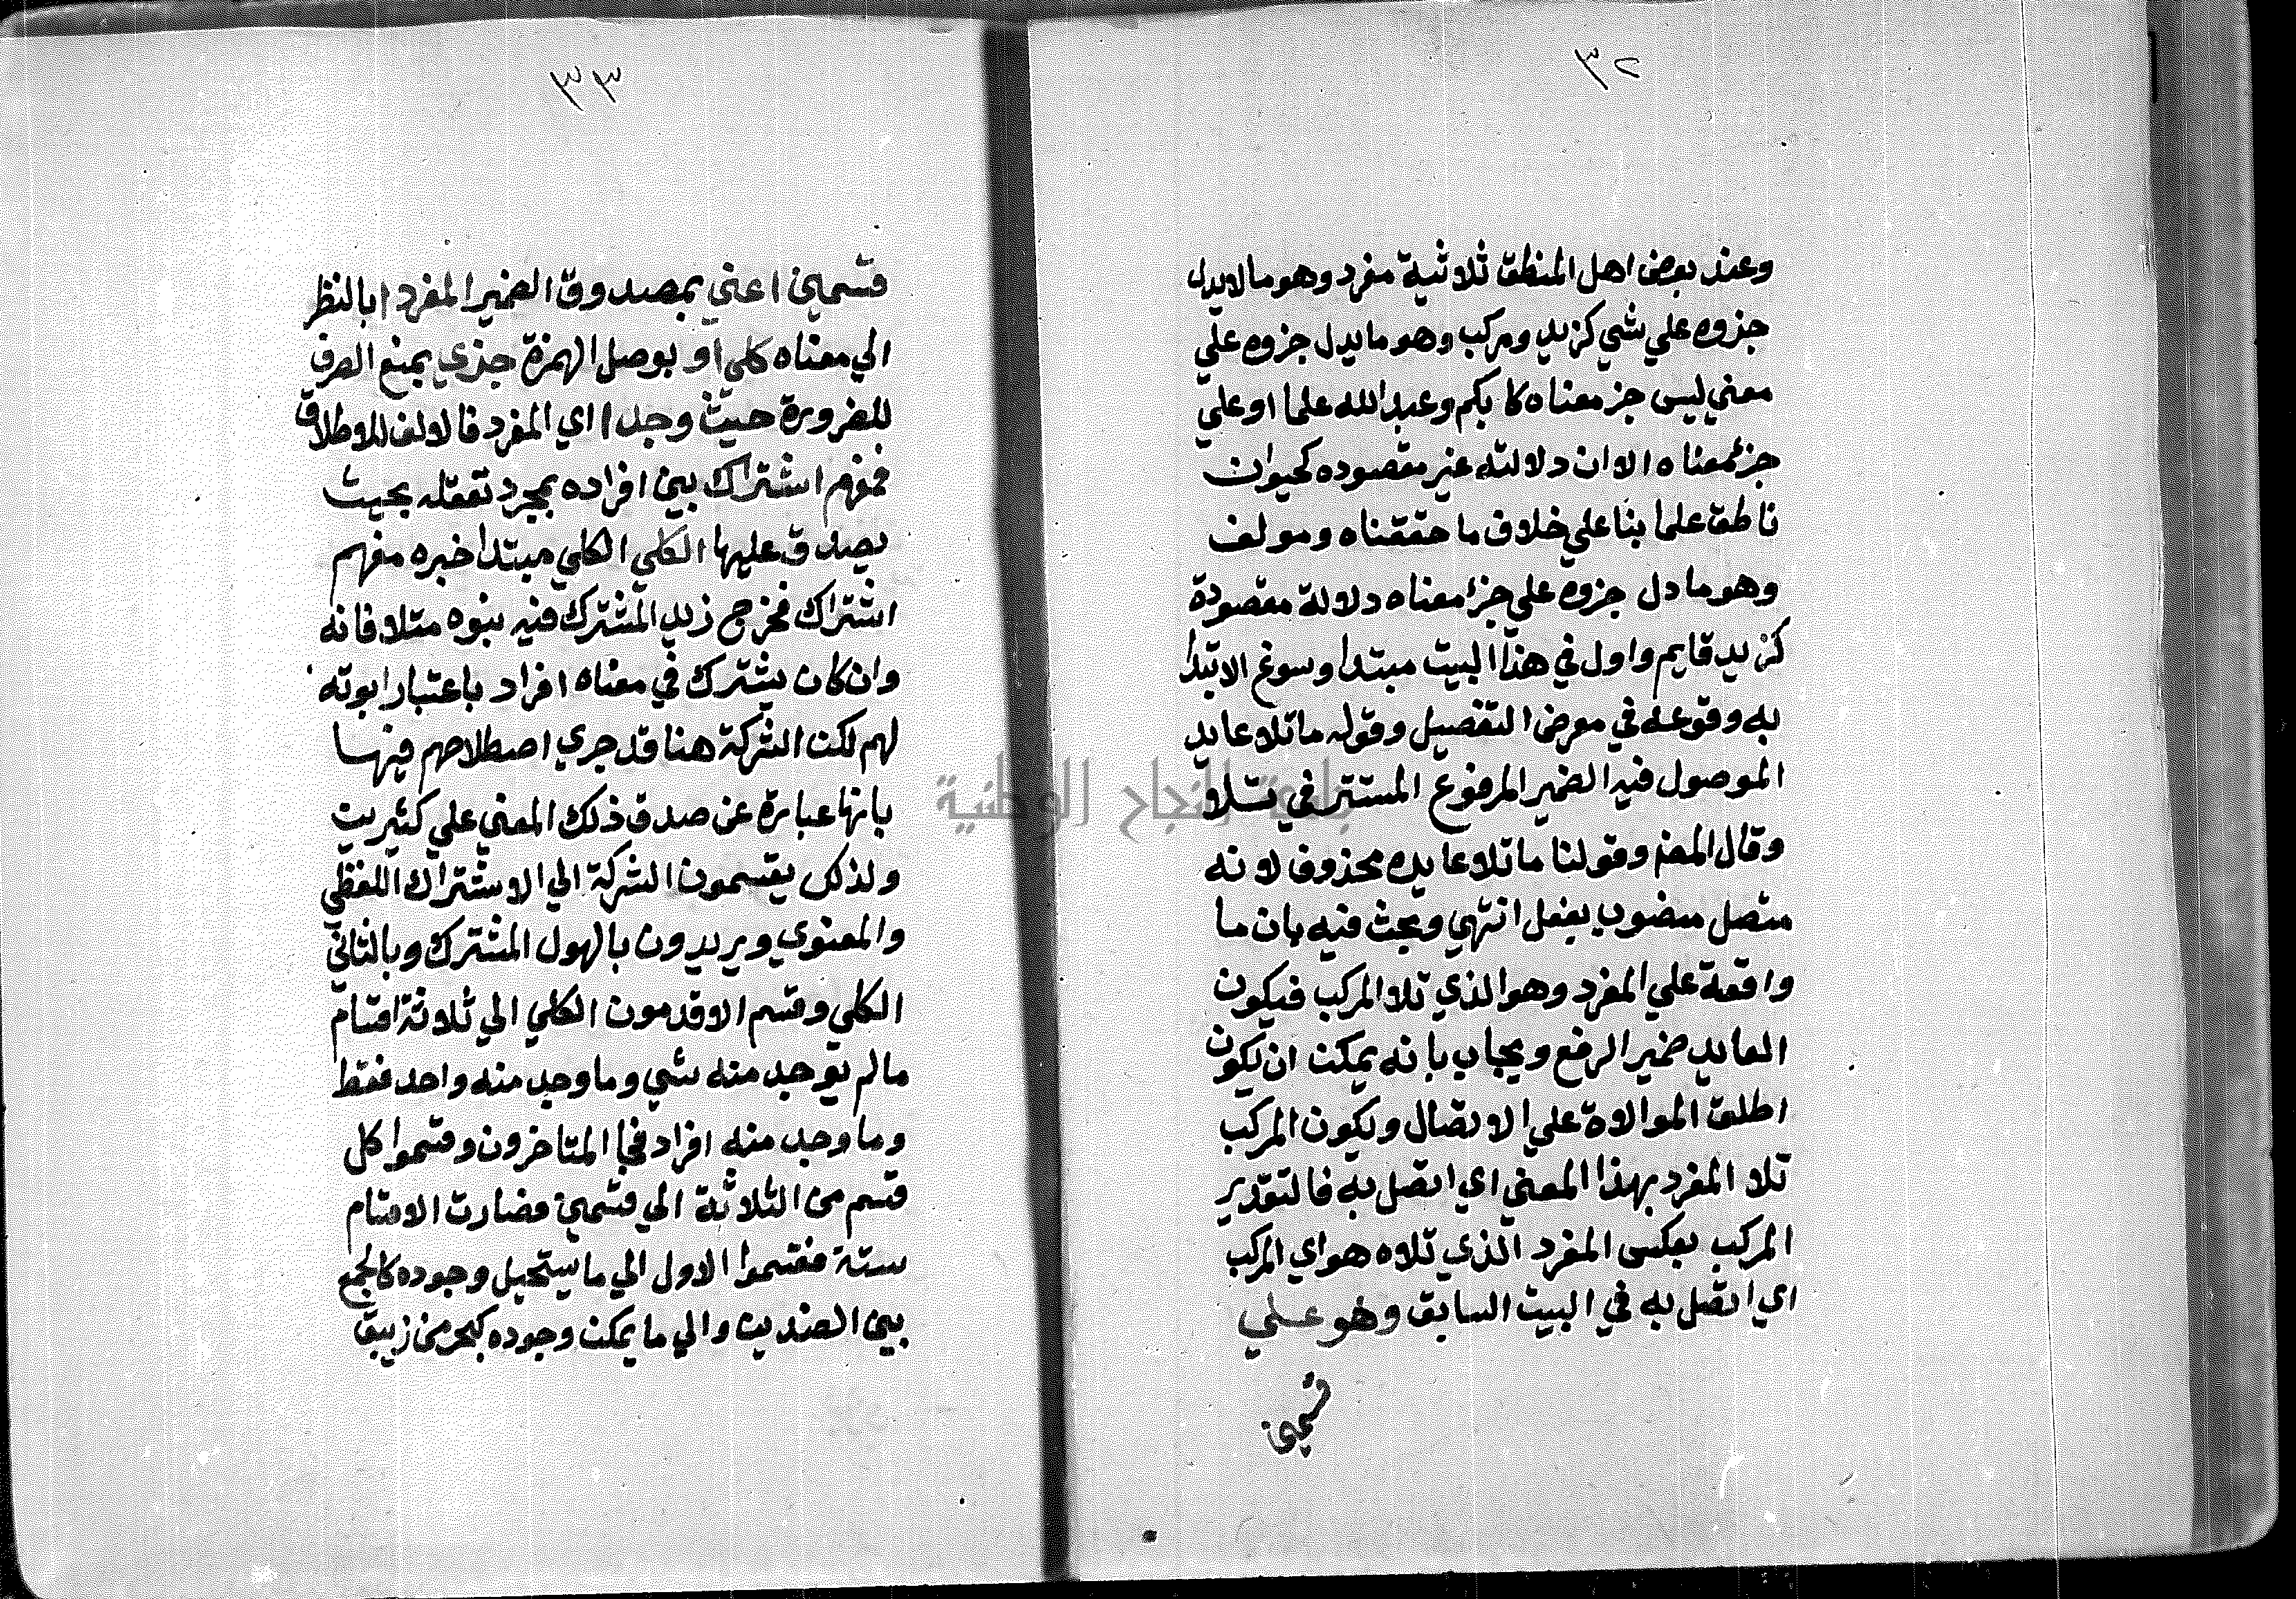 ٣٢
وعند بعض اهل المنطق ثلاثية مفرد وهو ما لا يدل
جزوه علي شي كزيد ومركب وهو ما يدل جزوه علي
معني ليس جز معناه كابكم وعبد الله علما او علي
جزء معناه الا ان دلالته غير مقصوده كحيوان
ناطق علما بنا علي خلاف ما حققناه ومولف
وهو ما دل جزوه علي جزء معناه دلالة مقصودة
كزيد قايم واول في هذا البيت مبتدا وسوغ الابتدا
به وقوعه في معرض التفصيل وقوله ما تلا عايد
الموصول فيه الضمير المرفوع المستتر في تلا
وقال المص وقولنا ما تلا عايده محذوف لانه
متصل منصوب بفعل انتهي وبحث فيه بان ما
واقعة علي المفرد وهو الذي تلا المركب فيكون
العايد ضمير الرفع ويجاب بانه يمكن ان يكون
اطلق الموالاة علي الاتصال ويكون المركب
تلا المفرد بهذا المعني اي اتصل به فالتقدير
المركب بعكس المفرد الذي تلاه هو اي المركب
اي اتصل به في البيت السابق وهو علي
قسمين
٣٣
قسمين اعني بمصدوق الضمير المفردا بالنظر
الي معناه كلي او بوصل الهمزة جزي بمنع الصرف
للضرورة حيث وجدا اي المفرد فالالف للاطلاق
فمفهم اشتراك بين افراده بمجرد تعقله بحيث
يصدق عليها الكلي الكلي مبتدا خبره مفهم
اشتراك فخرج زيد المشترك فيه بنوه مثلا فانه
وان كان يشترك في معناه افراد باعتبار ابوته
لهم لكن الشركة هنا قد جري اصطلاحهم فيها
بانها عبارة عن صدق ذلك المعني علي كثيرين
ولذلك يقسمون الشركة الي الاشتراك اللفظي
والمعنوي ويريدون بالاول المشترك وبالثاني
الكلي وقسم الاقدمون الكلي الي ثلاثة اقسام
مالم يوجد منه شي وما وجد منه واحد فقط
وما وجد منه افراد فجا المتاخرون وقسموا كل
قسم من الثلاثة الي قسمين فصارت الاقسام
ستة فقسموا الاول الي ما يستحيل وجوده كالجمع
بين الضدين والي ما يمكن وجوده كبحر من زيبق
جامعة النجاح الوطنية